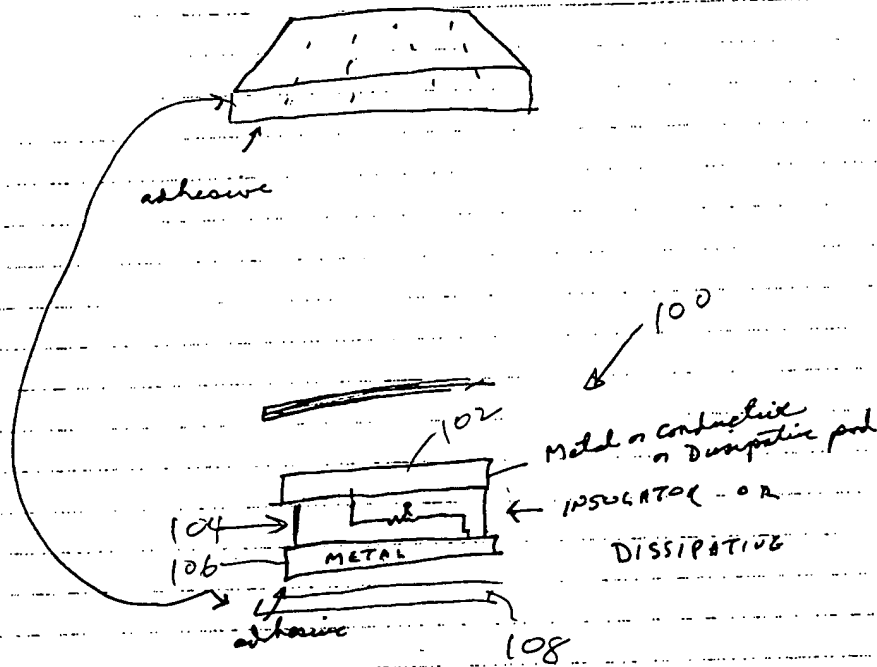 adhesive
100
102
Metal or conductive
or Dissipative pad
104
INSULATOR OR
DISSIPATIVE
R
106
METAL
adhesive
108